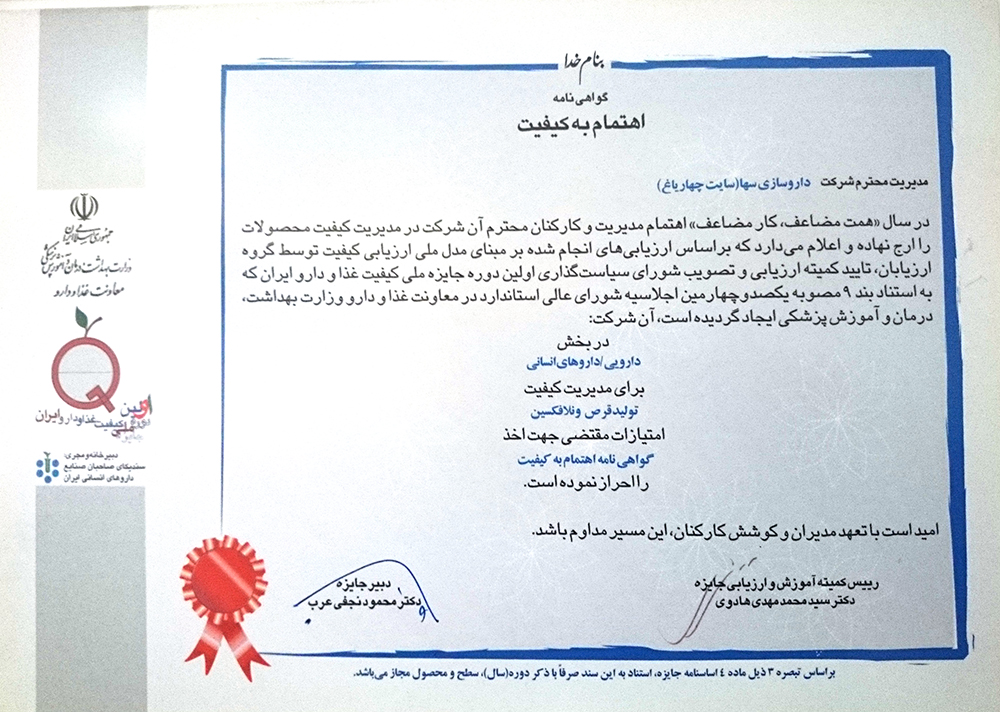 بنام خدا
گواهی نامه
اهتمام به کیفیت
مدیریت محترم شرکت داروسازی سها(سایت چهارباغ)
در سال «همت مضاعف، کار مضاعف» اهتمام مدیریت و کارکنان محترم آن شرکت در مدیریت کیفیت محصولات
را ارج نهاده و اعلام می‌دارد که براساس ارزیابی‌های انجام شده بر مبنای مدل ملی ارزیابی کیفیت توسط گروه
ارزیابان، تایید کمیته ارزیابی و تصویب شورای سیاست‌گذاری اولین دوره جایزه ملی کیفیت غذا و دارو ایران که
به استناد بند ۹ مصوبه یکصدوچهارمین اجلاسیه شورای عالی استاندارد در معاونت غذا و دارو وزارت بهداشت،
درمان و آموزش پزشکی ایجاد گردیده است، آن شرکت:
در بخش
دارویی/داروهای انسانی
برای مدیریت کیفیت
تولید قرص ونلافکسین
امتیازات مقتضی جهت اخذ
گواهی نامه اهتمام به کیفیت
را احراز نموده است.
امید است با تعهد مدیران و کوشش کارکنان، این مسیر مداوم باشد.
رییس کمیته آموزش و ارزیابی جایزه
دکتر سید محمد مهدی هادوی
دبیر جایزه
دکتر محمود نجفی عرب
براساس تبصره ۳ ذیل ماده ٤ اساسنامه جایزه، استناد به این سند صرفاً با ذکر دوره(سال)، سطح و محصول مجاز می‌باشد.
جمهوری اسلامی ایران
وزارت بهداشت، درمان و آموزش پزشکی
معاونت غذا و دارو
اولین
کیفیت غذا و دارو ایران
ملی
دبیرخانه و مجری:
سندیکای صاحبان صنایع
داروهای انسانی ایران